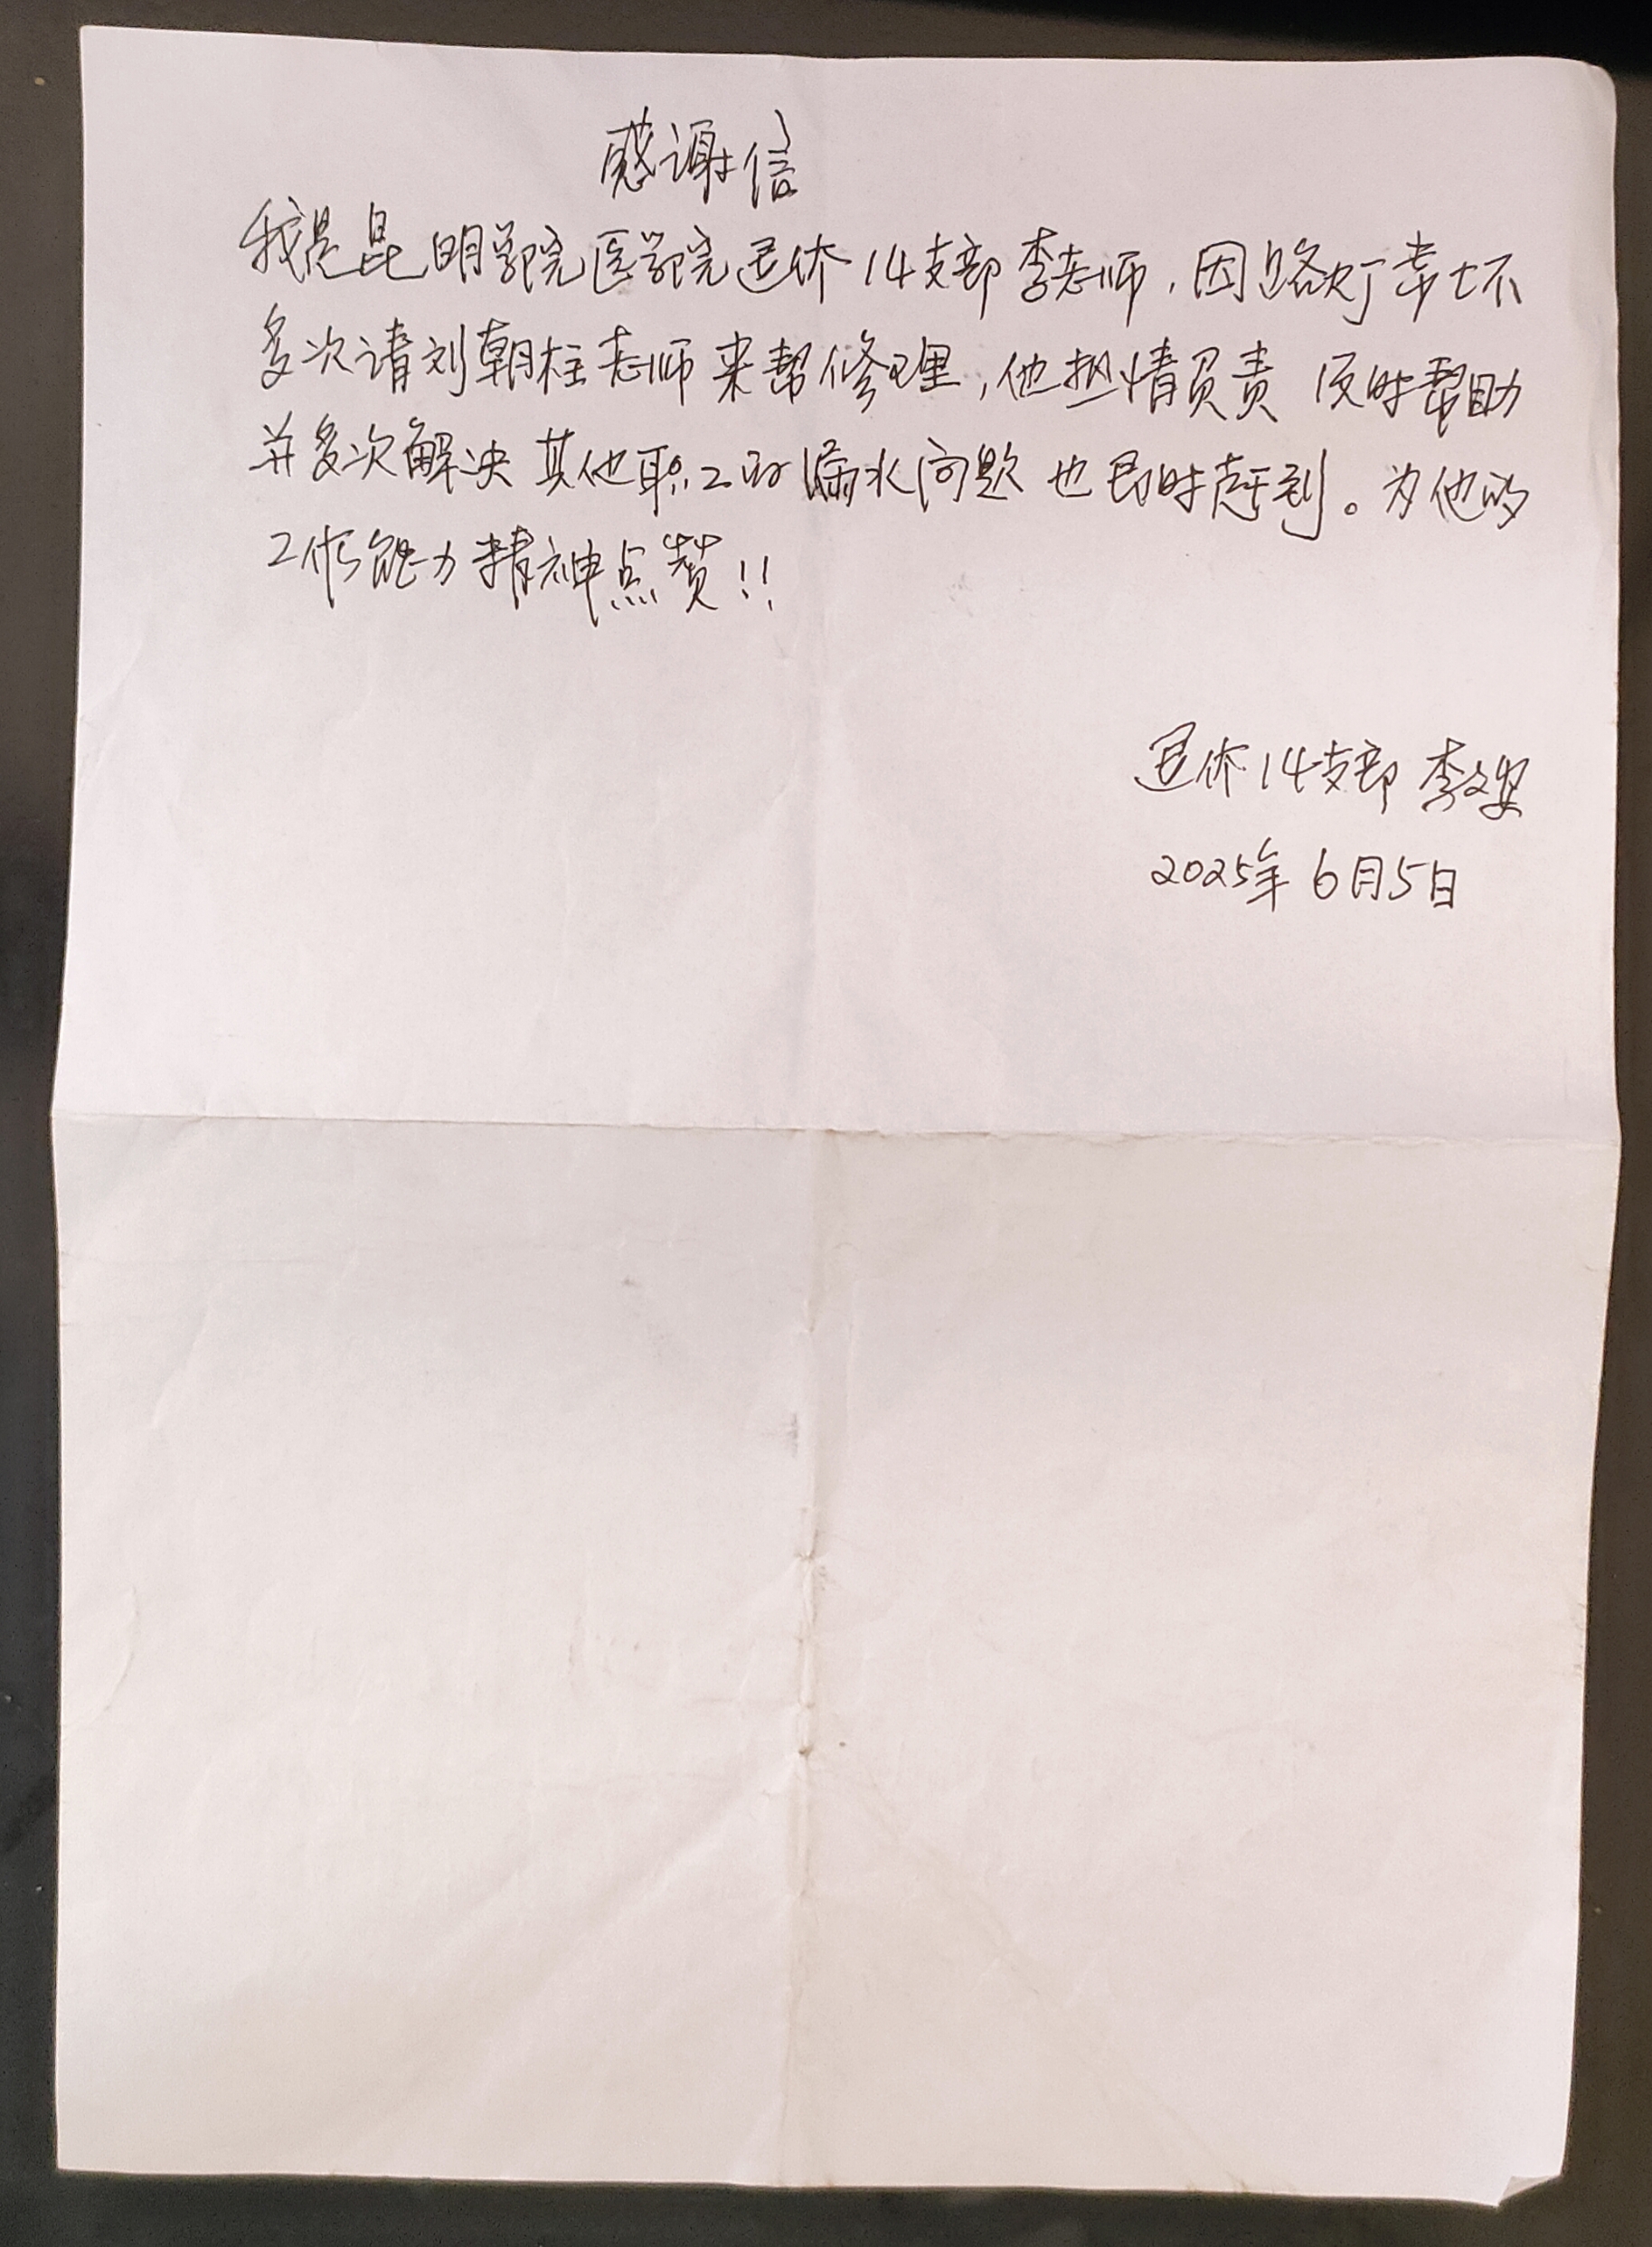 感谢信
我是昆明学院医学院退休14支部李老师，因路灯常坏
多次请刘朝柱老师来帮修理，他热情负责 及时帮助
并多次解决其他职工的漏水问题 也即时赶到。为他的
工作能力精神点赞!!
退休14支部 李文
2025年6月5日